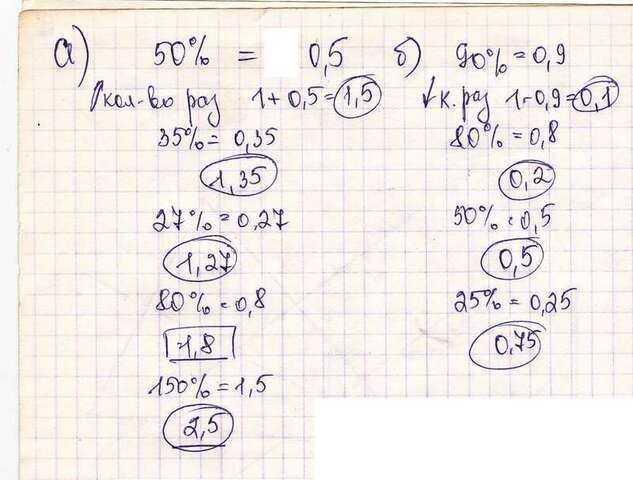 а) 50% = 0,5
↑кол-во раз 1+0,5=1,5
35%= 0,35
1,35
27%=0,27
1,27
80%=0,8
1,8
150%=1,5
2,5
б) 90%=0,9
↓к. раз 1-0,9=0,1
80%=0,8
0,2
50%=0,5
0,5
25%=0,25
0,75